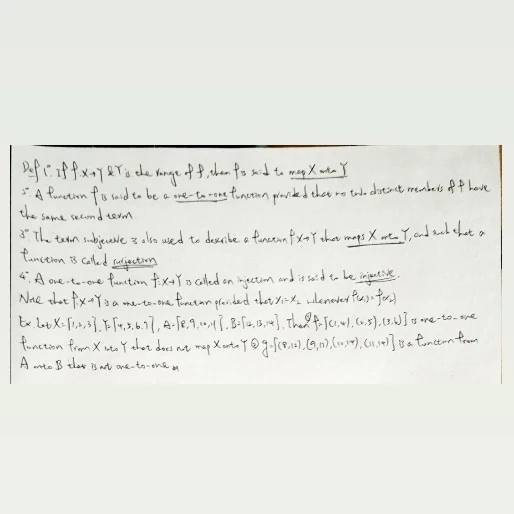 Def 1° If f: X→Y & Y is the range of f, then f is said to map X onto Y
2° A function f is said to be a one-to-one function provided that no two distinct members of f have
the same second term
3° The term subjective is also used to describe a function f: X→Y that maps X onto Y, and such that a
function is called surjection
4° A one-to-one function f: X→Y is called an injection and is said to be injective.
Note that f: X→Y is a one-to-one function provided that X₁=X₂ whenever f(x₁)=f(x₂)
Ex Let X={1,2,3}, Y={4,5,6,7}, A={8,9,10,11}, B={12,13,14}. Then ① f={(1,4), (2,5), (3,6)} is one-to-one
function from X into Y that does not map X onto Y ② g={(8,12), (9,13), (10,14), (11,14)} is a function from
A onto B that is not one-to-one